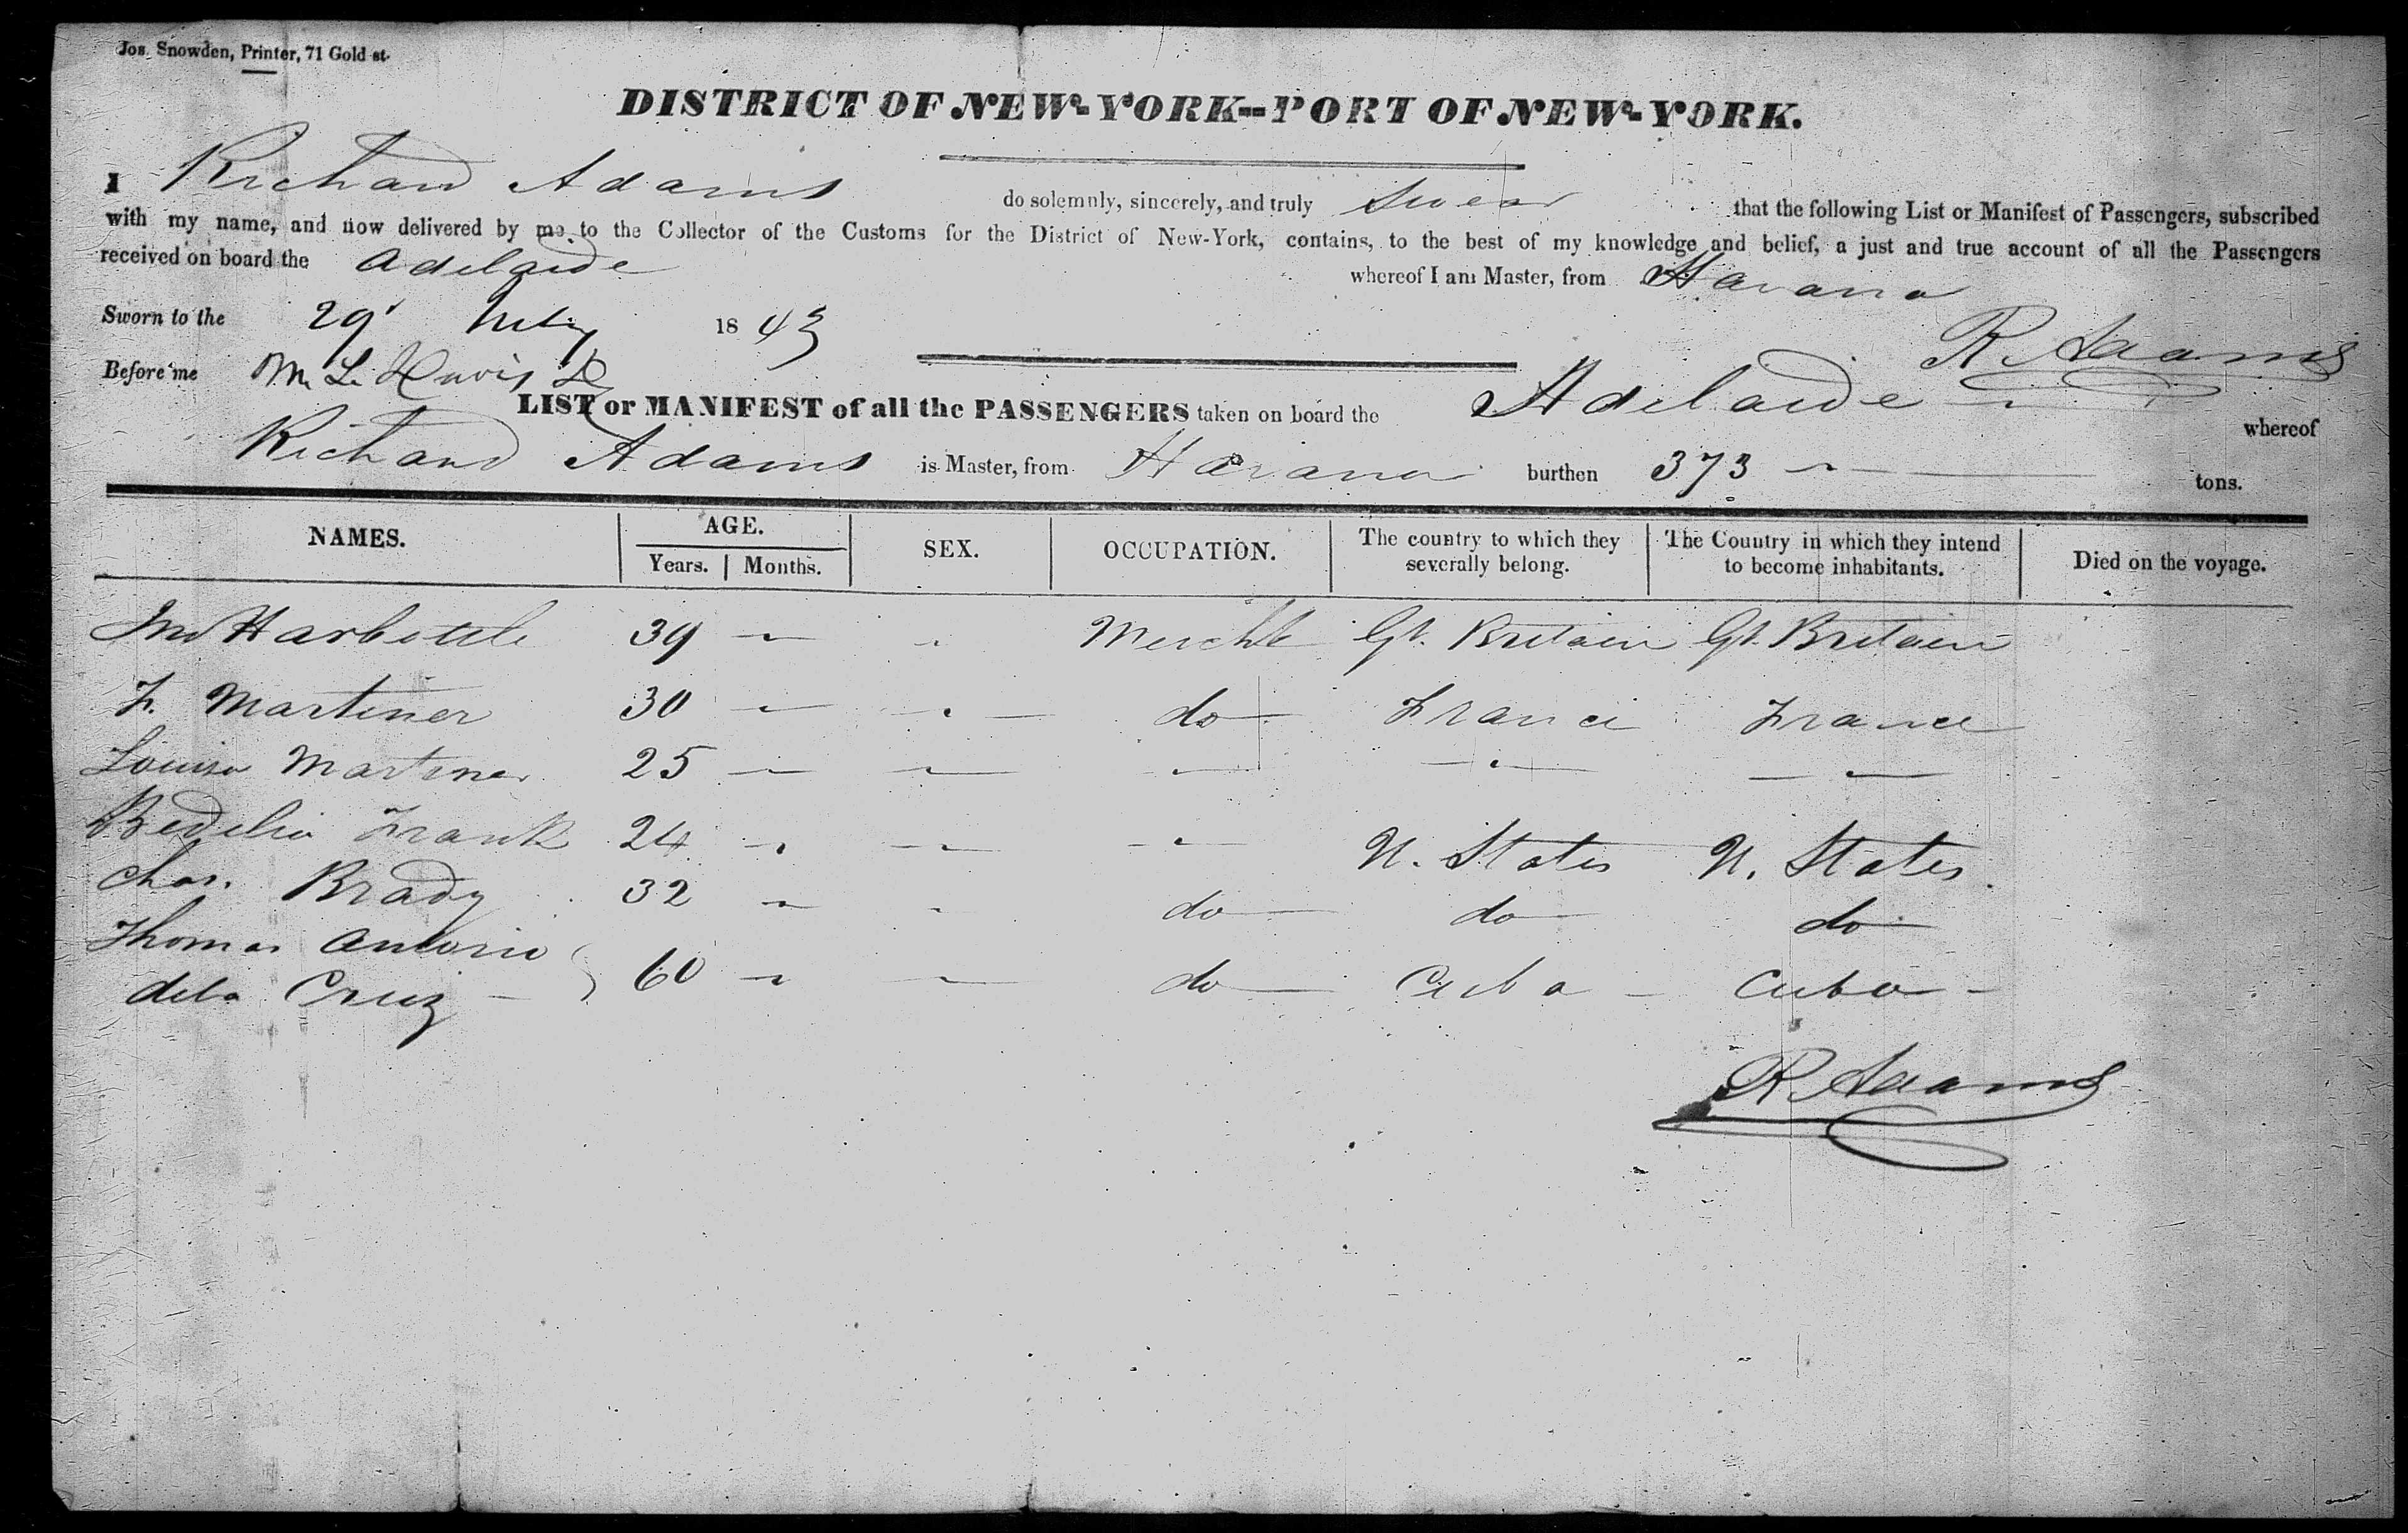 Jos. Snowden, Printer, 71 Gold st.
DISTRICT OF NEW-YORK--PORT OF NEW-YORK.
I Richard Adams do solemnly, sincerely, and truly Swear that the following List or Manifest of Passengers, subscribed
with my name, and now delivered by me to the Collector of the Customs for the District of New-York, contains, to the best of my knowledge and belief, a just and true account of all the Passengers
received on board the Adelaide whereof I am Master, from Havana
Sworn to the 29 July 1843
R Adams
Before me M. L. Davis
LIST or MANIFEST of all the PASSENGERS taken on board the Adelaide whereof
Richard Adams is Master, from Havana burthen 373 tons.
NAMES. AGE. Years. Months. SEX. OCCUPATION. The country to which they severally belong. The Country in which they intend to become inhabitants. Died on the voyage.
Jno Harbottle 39 Mercht Gt. Britain Gt. Britain
F. Martiner 30 do France France
Louisa Martiner 25
Bedelia Frank 24 U. States U. States
Chas. Brady 32 do do do
Thomas Antonio
dela Cruz 60 do Cuba Cuba
R Adams